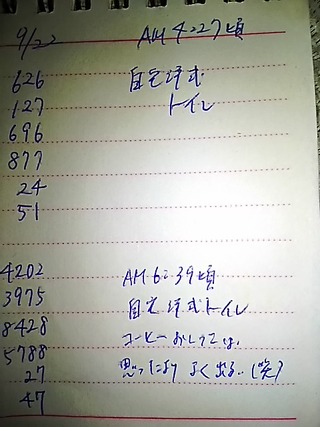 9/22 AM 4:27頃
626 自宅洋式
127 トイレ
696
877
24
51
4202 AM 6:39頃
3975 自宅洋式トイレ
8428 コーヒーおしっこでは、
5788 思ったより よく出る..(笑)
27
47